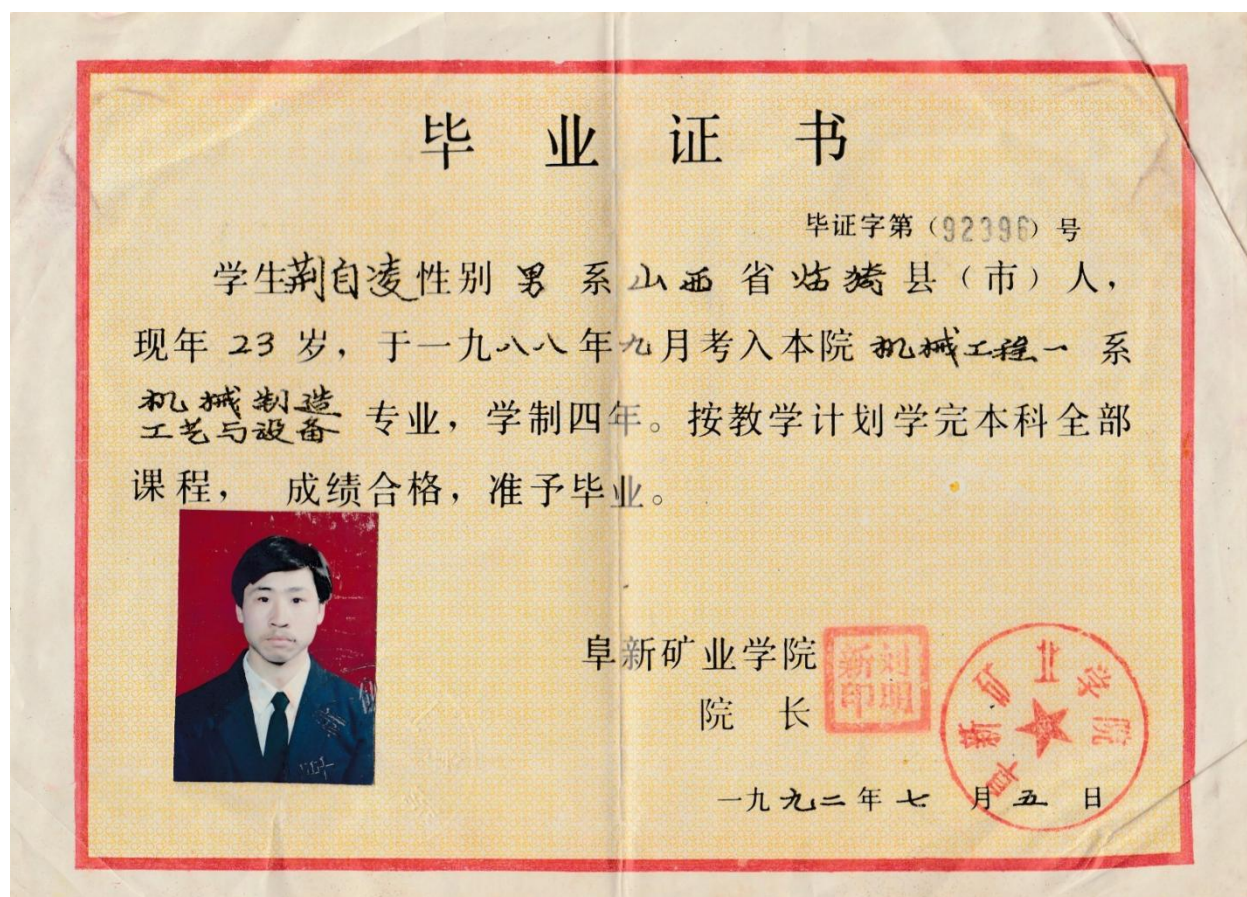 毕业证书
毕证字第（92396）号
学生荆自凌性别 男 系山西省临猗县（市）人，
现年 23 岁，于一九八八年九月考入本院 机械工程一 系
机械制造
工艺与设备 专业，学制四年。按教学计划学完本科全部
课程， 成绩合格，准予毕业。
阜新矿业学院
院 长
刘明新印
阜新矿业学院
一九九二年七月五日